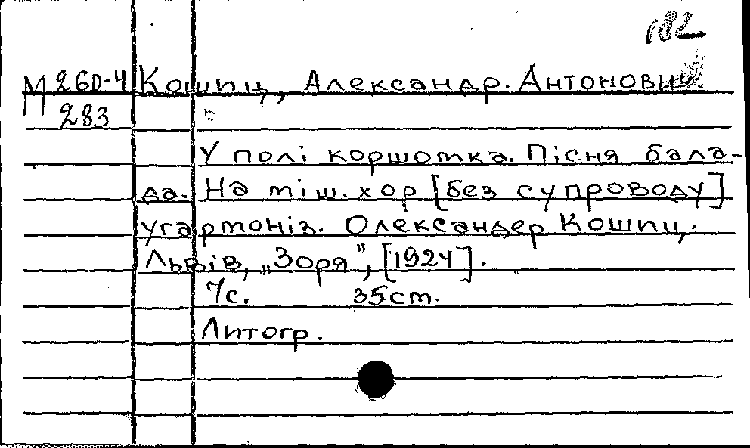 182
М 260-4 Кошиц, Александр. Антонович.
283
У полі коршотка. Пісня бала-
да. На міш. хор [без супроводу]
угармоніз. Олександер Кошиц.
Львів, „Зоря", [1924].
7с. 35см.
Литогр.